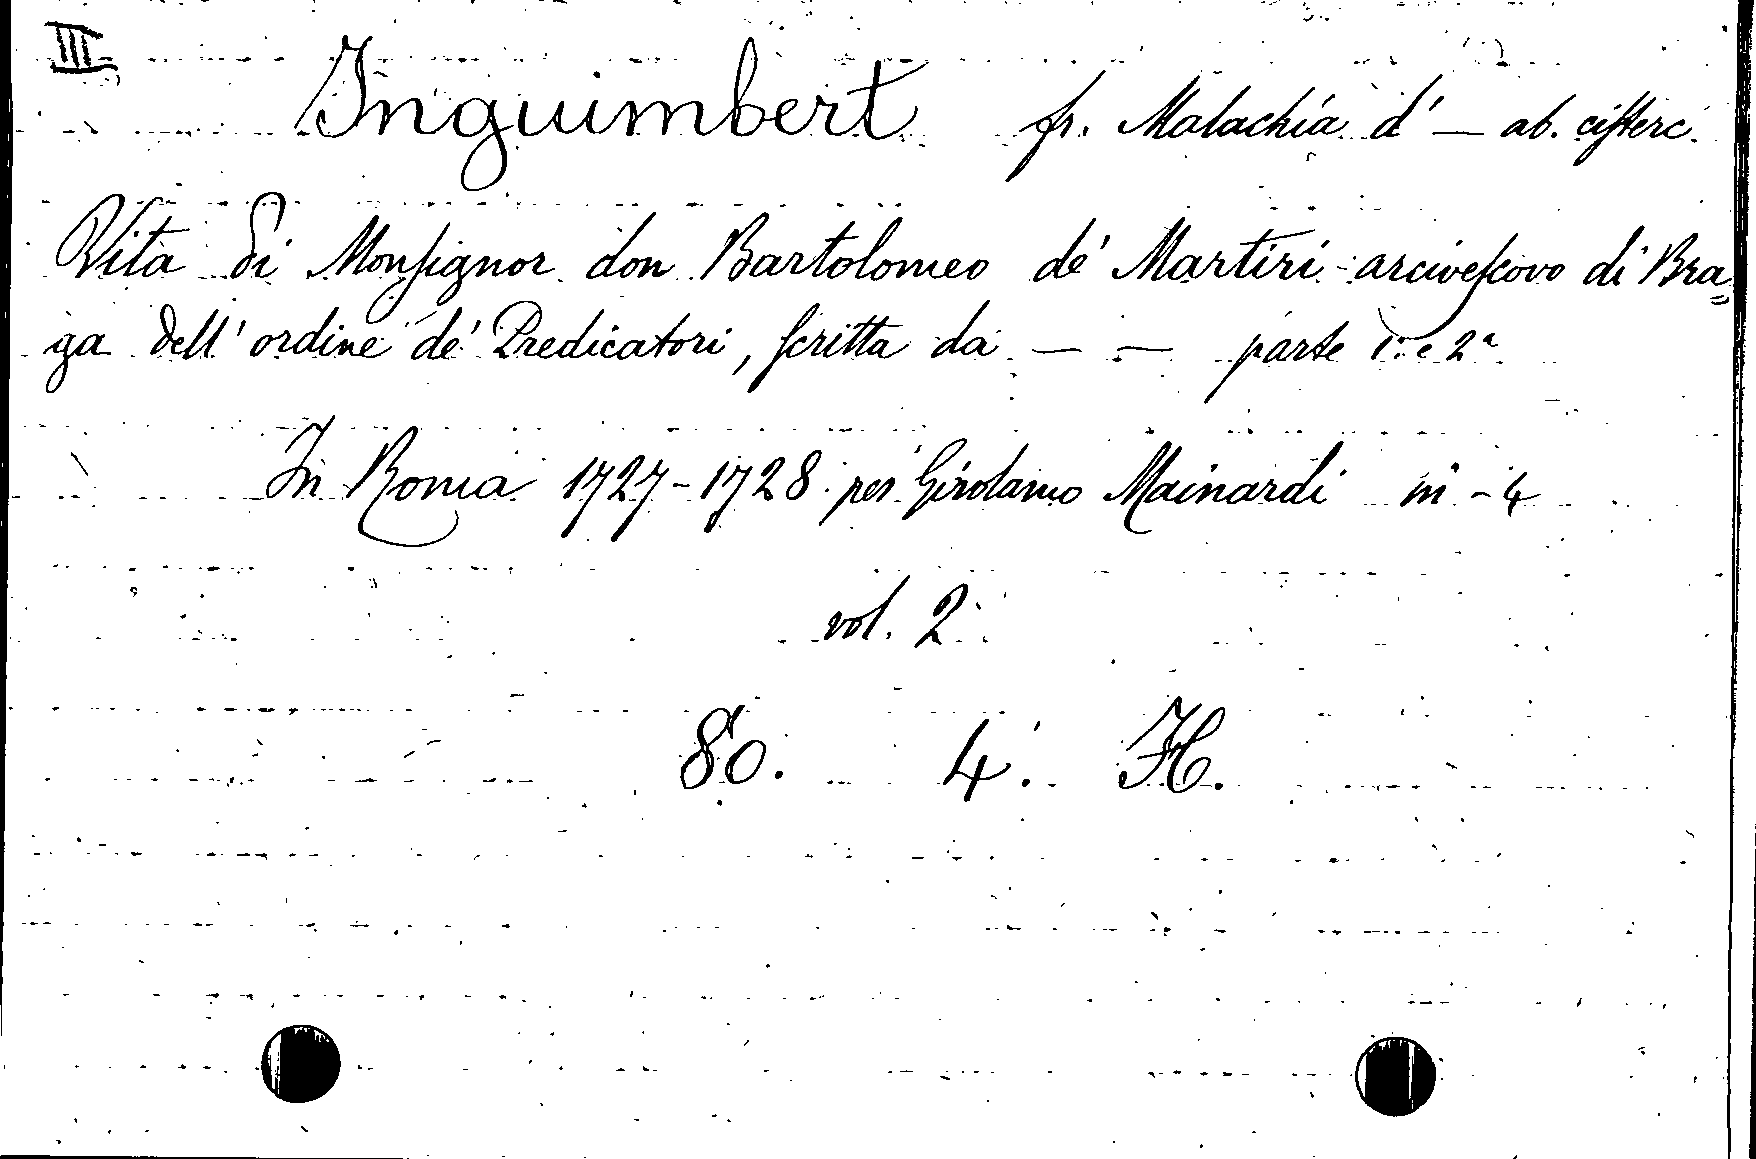 III
Inguimbert fr. Malachia d' — ab. cisterc.
Vita di Monsignor don Bartolomeo de' Martiri arcivescovo di Bra=
ga dell' ordine de' Predicatori, scritta da — — parte 1a e 2a
In Roma 1727-1728 per Girolamo Mainardi in-4
vol. 2
80. 4. H.